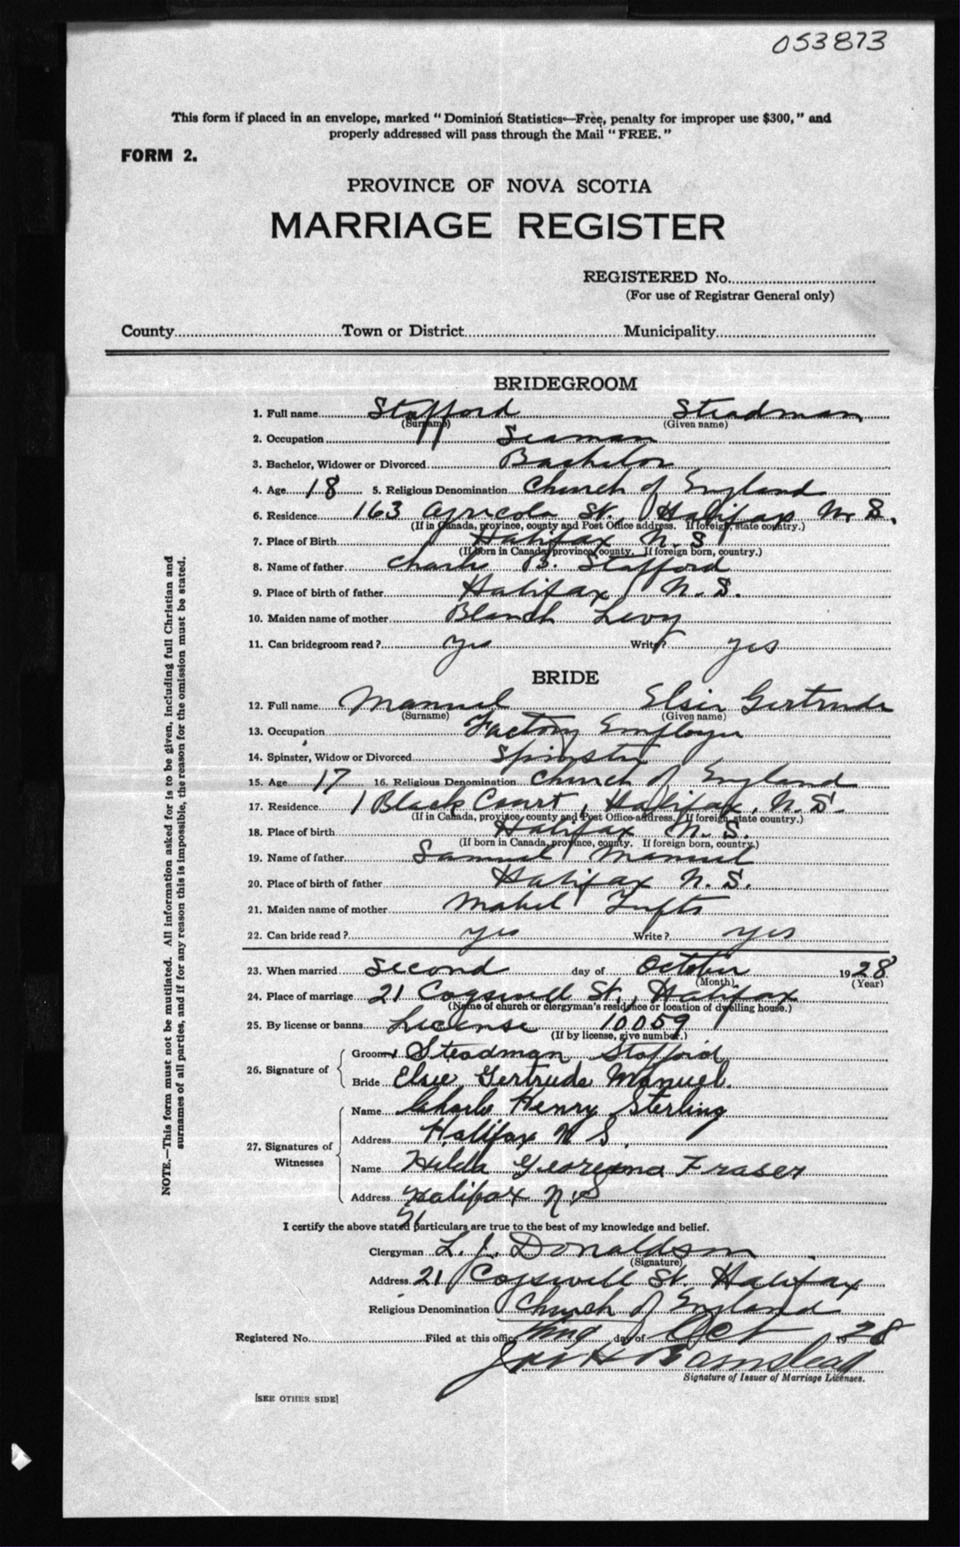 053873
This form if placed in an envelope, marked "Dominion Statistics—Free, penalty for improper use $300," and
properly addressed will pass through the Mail "FREE."
FORM 2.
PROVINCE OF NOVA SCOTIA
MARRIAGE REGISTER
REGISTERED No.
(For use of Registrar General only)
County Town or District Municipality
BRIDEGROOM
1. Full name Stafford Steadman
(Surname) (Given name)
2. Occupation Seaman
3. Bachelor, Widower or Divorced Bachelor
4. Age 18 5. Religious Denomination Church of England
6. Residence 163 Agricola St. Halifax N. S.
(If in Canada, province, county and Post Office address. If foreign, state country.)
7. Place of Birth Halifax N. S
(If born in Canada, province, county. If foreign born, country.)
8. Name of father Charles B. Stafford
9. Place of birth of father Halifax N. S.
10. Maiden name of mother Blanch Levy
11. Can bridegroom read? yes Write? yes
BRIDE
12. Full name Manuel Elsie Gertrude
(Surname) (Given name)
13. Occupation Factory Employee
14. Spinster, Widow or Divorced Spinster
15. Age 17 16. Religious Denomination Church of England
17. Residence 1 Black Court, Halifax, N. S.
(If in Canada, province, county and Post Office address. If foreign, state country.)
18. Place of birth Halifax N. S.
(If born in Canada, province, county. If foreign born, country.)
19. Name of father Samuel Manuel
20. Place of birth of father Halifax N. S.
21. Maiden name of mother Mabel Tufts
22. Can bride read? yes Write? yes
23. When married Second day of October 1928
(Month) (Year)
24. Place of marriage 21 Cogswell St., Halifax
(Name of church or clergyman's residence or location of dwelling house.)
25. By license or banns License 10059
(If by license, give number.)
26. Signature of
Groom Steadman Stafford
Bride Elsie Gertrude Manuel.
27. Signatures of Witnesses
Name Charles Henry Sterling
Address Halifax N S.
Name Hilda Georgina Fraser
Address Halifax N S
I certify the above stated particulars are true to the best of my knowledge and belief.
Clergyman L. J. Donaldson
(Signature)
Address 21 Cogswell St. Halifax
Religious Denomination Church of England
Registered No. Filed at this office day of Oct 28
Signature of Issuer of Marriage Licenses.
[SEE OTHER SIDE]
NOTE.—This form must not be mutilated. All information asked for is to be given, including full Christian and
surnames of all parties, and if for any reason this is impossible, the reason for the omission must be stated.